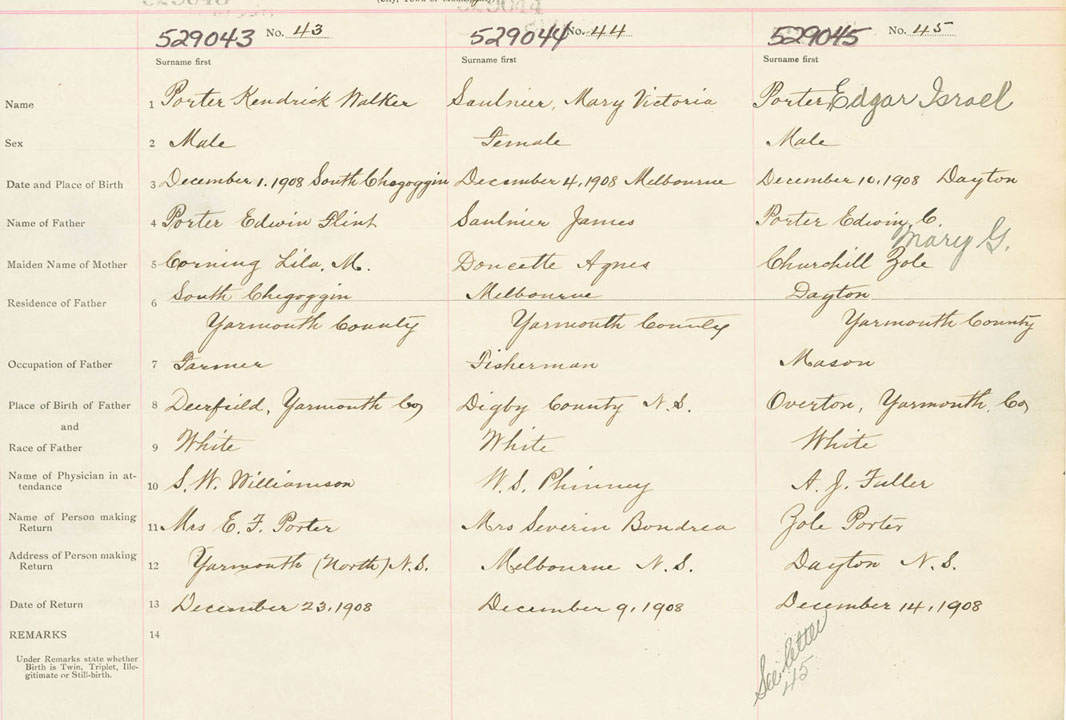 529043 No. 43 529044 No. 44 529045 No. 45
Surname first Surname first Surname first
Name 1 Porter Kendrick Walker Saulnier, Mary Victoria Porter, Edgar Israel
Sex 2 Male Female Male
Date and Place of Birth 3 December 1. 1908 South Chegoggin December 4, 1908 Melbourne December 10, 1908 Dayton
Name of Father 4 Porter Edwin Flint Saulnier James Porter Edwin, C.
Mary G.
Maiden Name of Mother 5 Corning Lila, M. Doucette Agnes Churchill Zole
Residence of Father 6 South Chegoggin Melbourne Dayton
Yarmouth County Yarmouth County Yarmouth County
Occupation of Father 7 Farmer Fisherman Mason
Place of Birth of Father 8 Deerfield, Yarmouth Co, Digby County N.S. Overton, Yarmouth, Co,
and
Race of Father 9 White White White
Name of Physician in at-
tendance 10 S. W. Williamson W. S. Phinney A. J. Fuller
Name of Person making
Return 11 Mrs E. F. Porter Mrs Severin Bondrea Zole Porter
Address of Person making
Return 12 Yarmouth (North) N.S. Melbourne N.S. Dayton N.S.
Date of Return 13 December 23, 1908 December 9, 1908 December 14, 1908
REMARKS 14
Under Remarks state whether
Birth is Twin, Triplet, Ille-
gitimate or Still-birth.
See letter
45